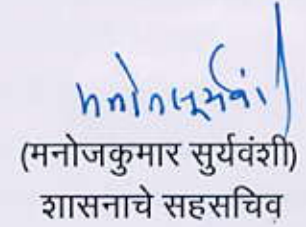 (मनोजकुमार सुर्यवंशी)
शासनाचे सहसचिव